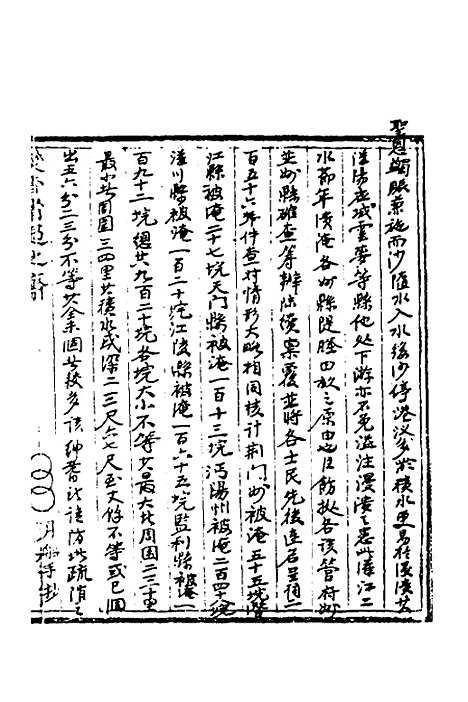 聖恩蠲賑兼施而沙隨水入水緩沙停港汊多淤積水更易在漢漬其
漢陽應城雲夢等縣他处下游亦不免溢注漫潰之患此漢江二
水節年漬淹各州縣隄塍田畝之原由也臣飭拠各該管府州
並州縣確查等辦陸續稟覆並將各士民先後呈一
百五十六件查封情形大略相同核计荆门州被淹五十五垸潛
江縣被淹二十七垸天门縣被淹一百十三垸沔陽州被淹二百四十垸
漢川縣被淹一百二十垸江陵縣被淹一百六十五垸監利縣被淹一
百九十二垸總共九百二十垸各垸大小不等其最大者周围二三十里
最小者周围三四里其積水或深二三尺六七尺至丈餘不等或已涸
出五六分二三分不等其全未涸者較多該紳耆請防此疏消之
月